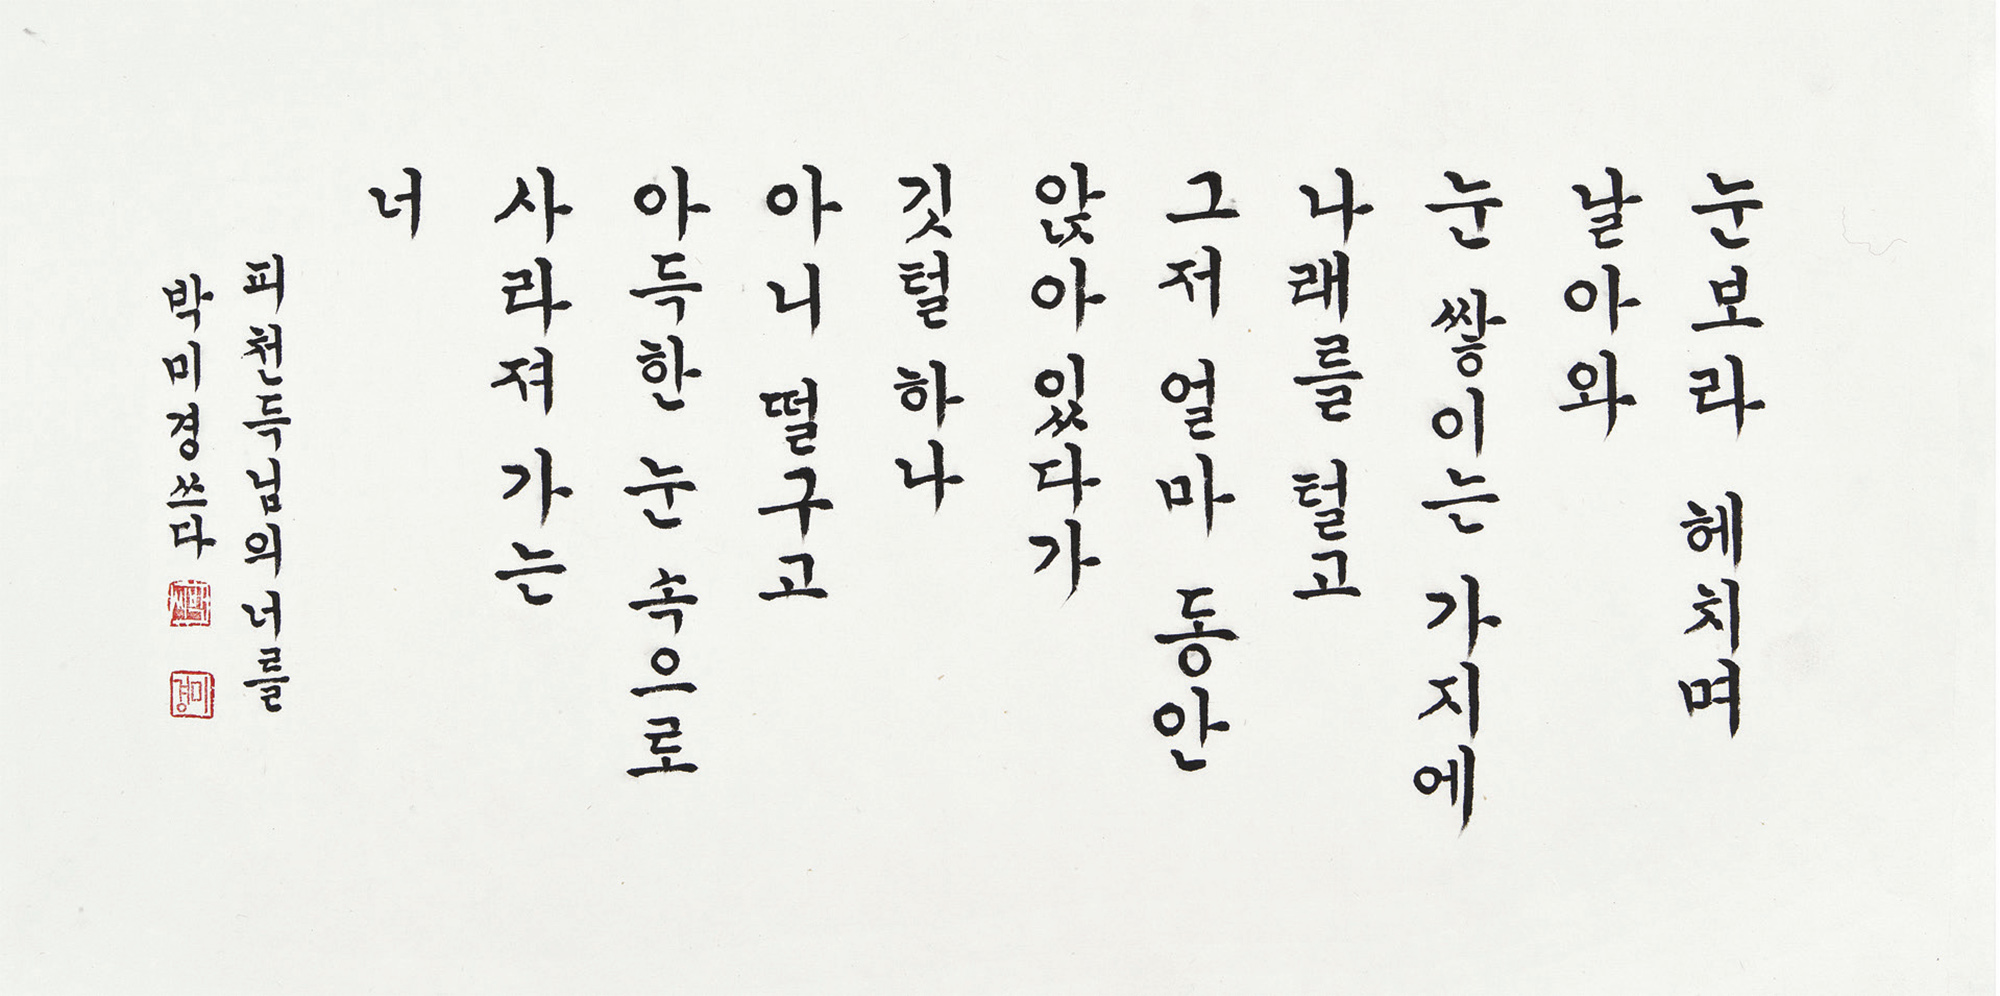 눈보라 헤치며
날아와
눈 쌓이는 가지에
나래를 털고
그저 얼마 동안
앉아 있다가
깃털 하나
아니 떨구고
아득한 눈 속으로
사라져 가는
너
피천득님의 너를
박미경쓰다
미경